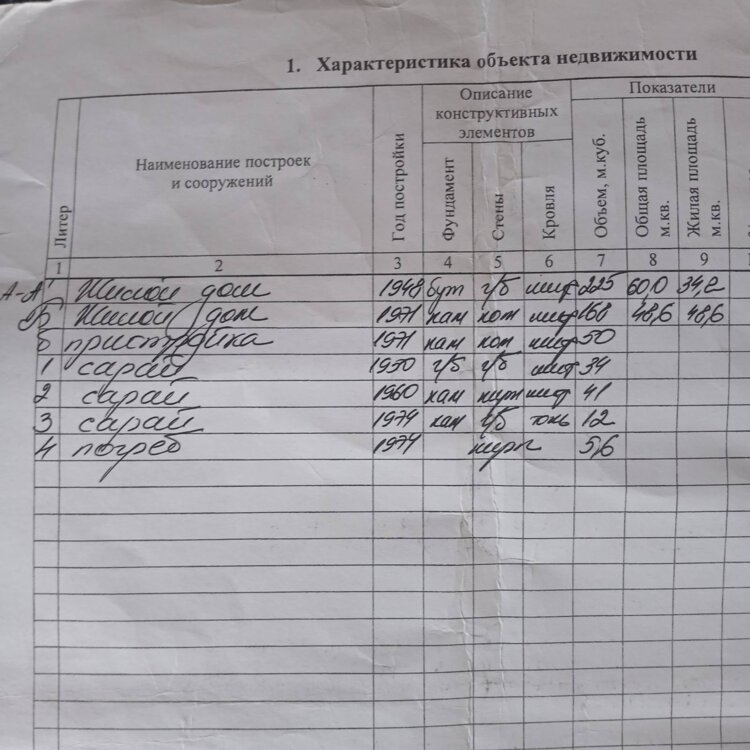 1. Характеристика объекта недвижимости
Литер
Наименование построек
и сооружений
Год постройки
Описание
конструктивных
элементов
Фундамент
Стены
Кровля
Показатели
Объем, м.куб.
Общая площадь
м.кв.
Жилая площадь
м.кв.
1 2 3 4 5 6 7 8 9
А-А' Жилой дом 1948 бут г/б шиф 225 60,0 34,2
Б Жилой дом 1971 кам кот шиф 168 48,6 48,6
б пристройка 1971 кам кот шиф 50
1 сарай 1950 г/б г/б шиф 34
2 сарай 1960 кам кирп шиф 41
3 сарай 1974 кам г/б толь 12
4 погреб 1974 кирп 5,6